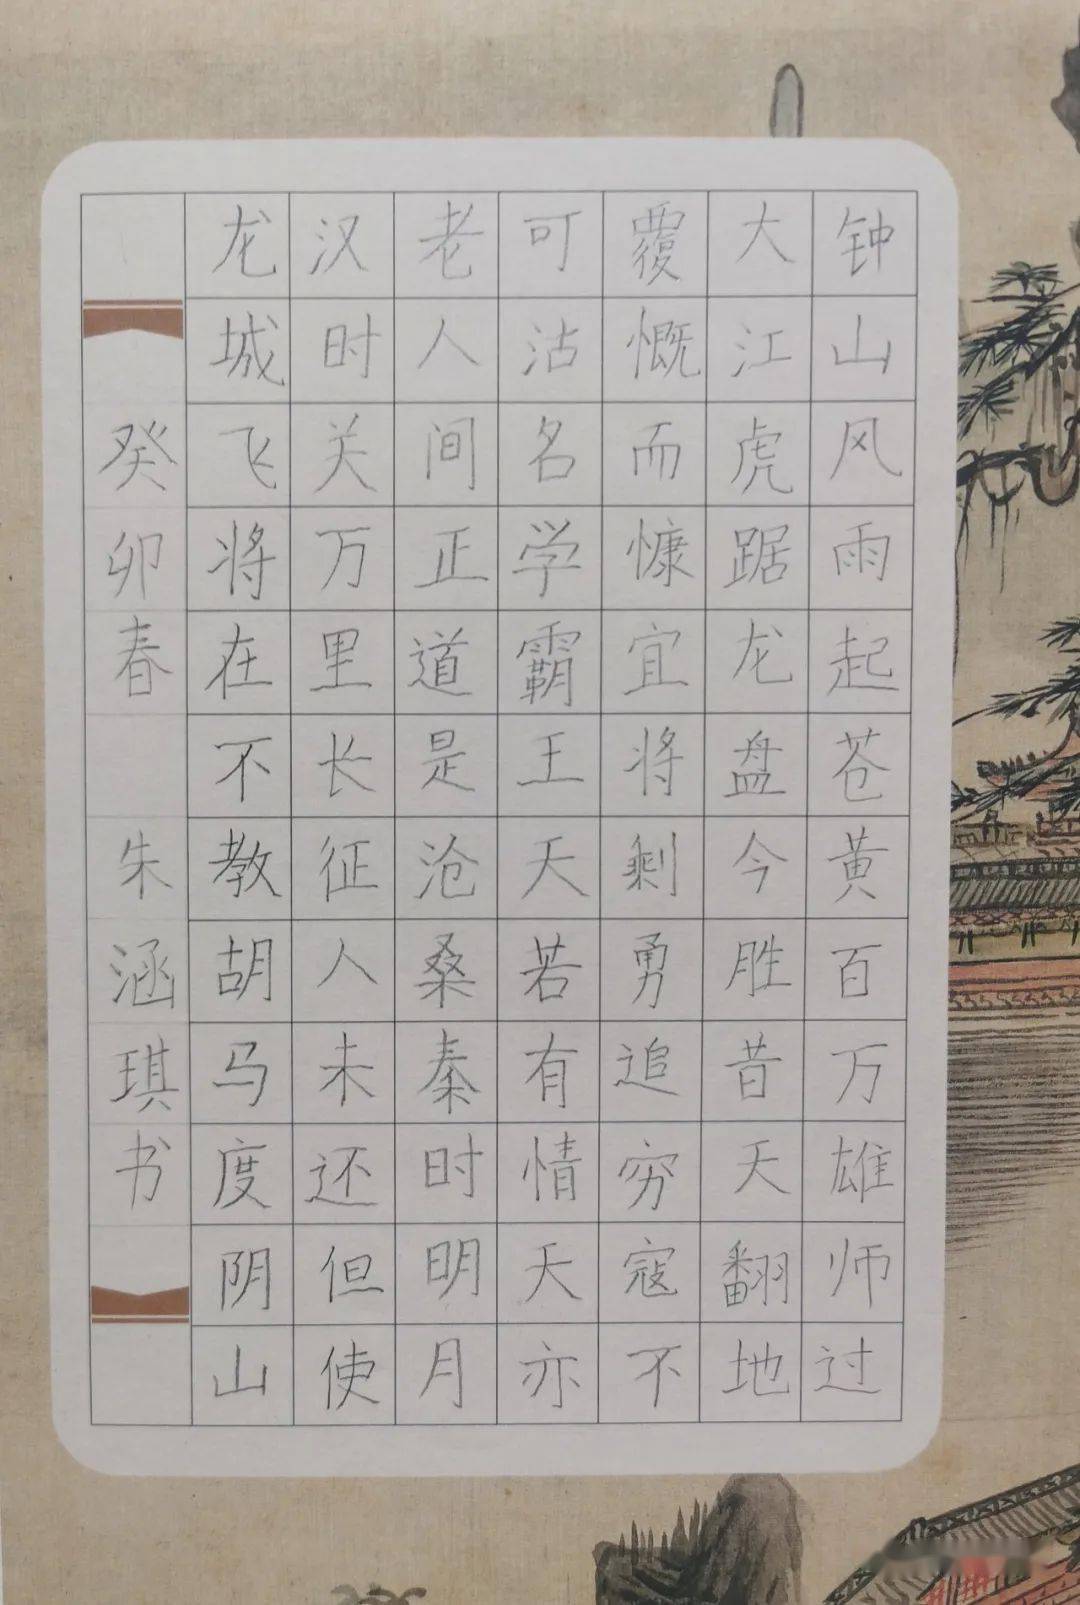 钟山风雨起苍黄百万雄师过
大江虎踞龙盘今胜昔天翻地
覆慨而慷宜将剩勇追穷寇不
可沽名学霸王天若有情天亦
老人间正道是沧桑秦时明月
汉时关万里长征人未还但使
龙城飞将在不教胡马度阴山
癸卯春 朱涵琪书